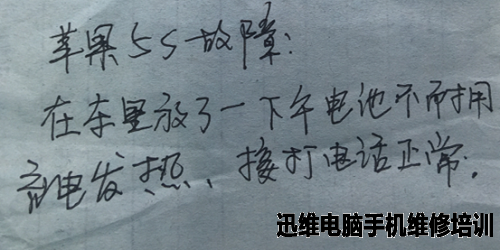 苹果5S故障:
在车里放了一下午电池不耐用
充电发热、接打电话正常.
迅维电脑手机维修培训